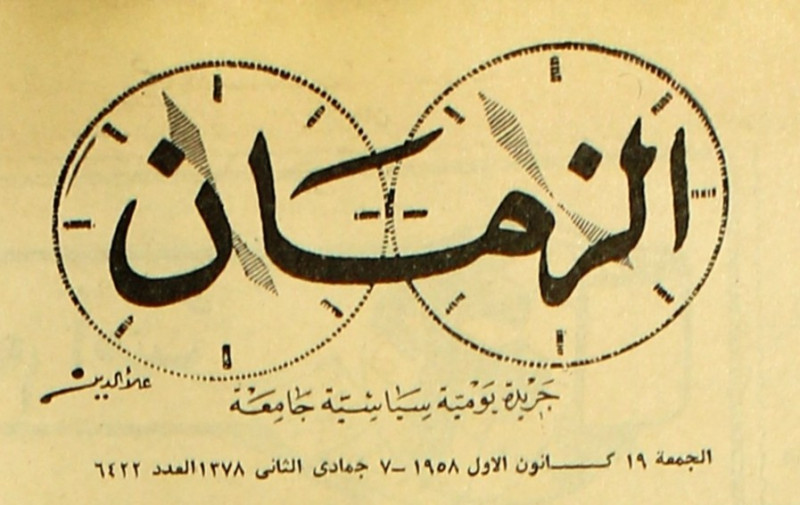 الزمان
علاءالدين
جَرْيَدة يَوْميَة سِيَاسِيَّة جَامِعَة
الجمعة ١٩ كـــانون الاول ١٩٥٨ –٧ جمادى الثانى ١٣٧٨العدد ٦٤٢٢